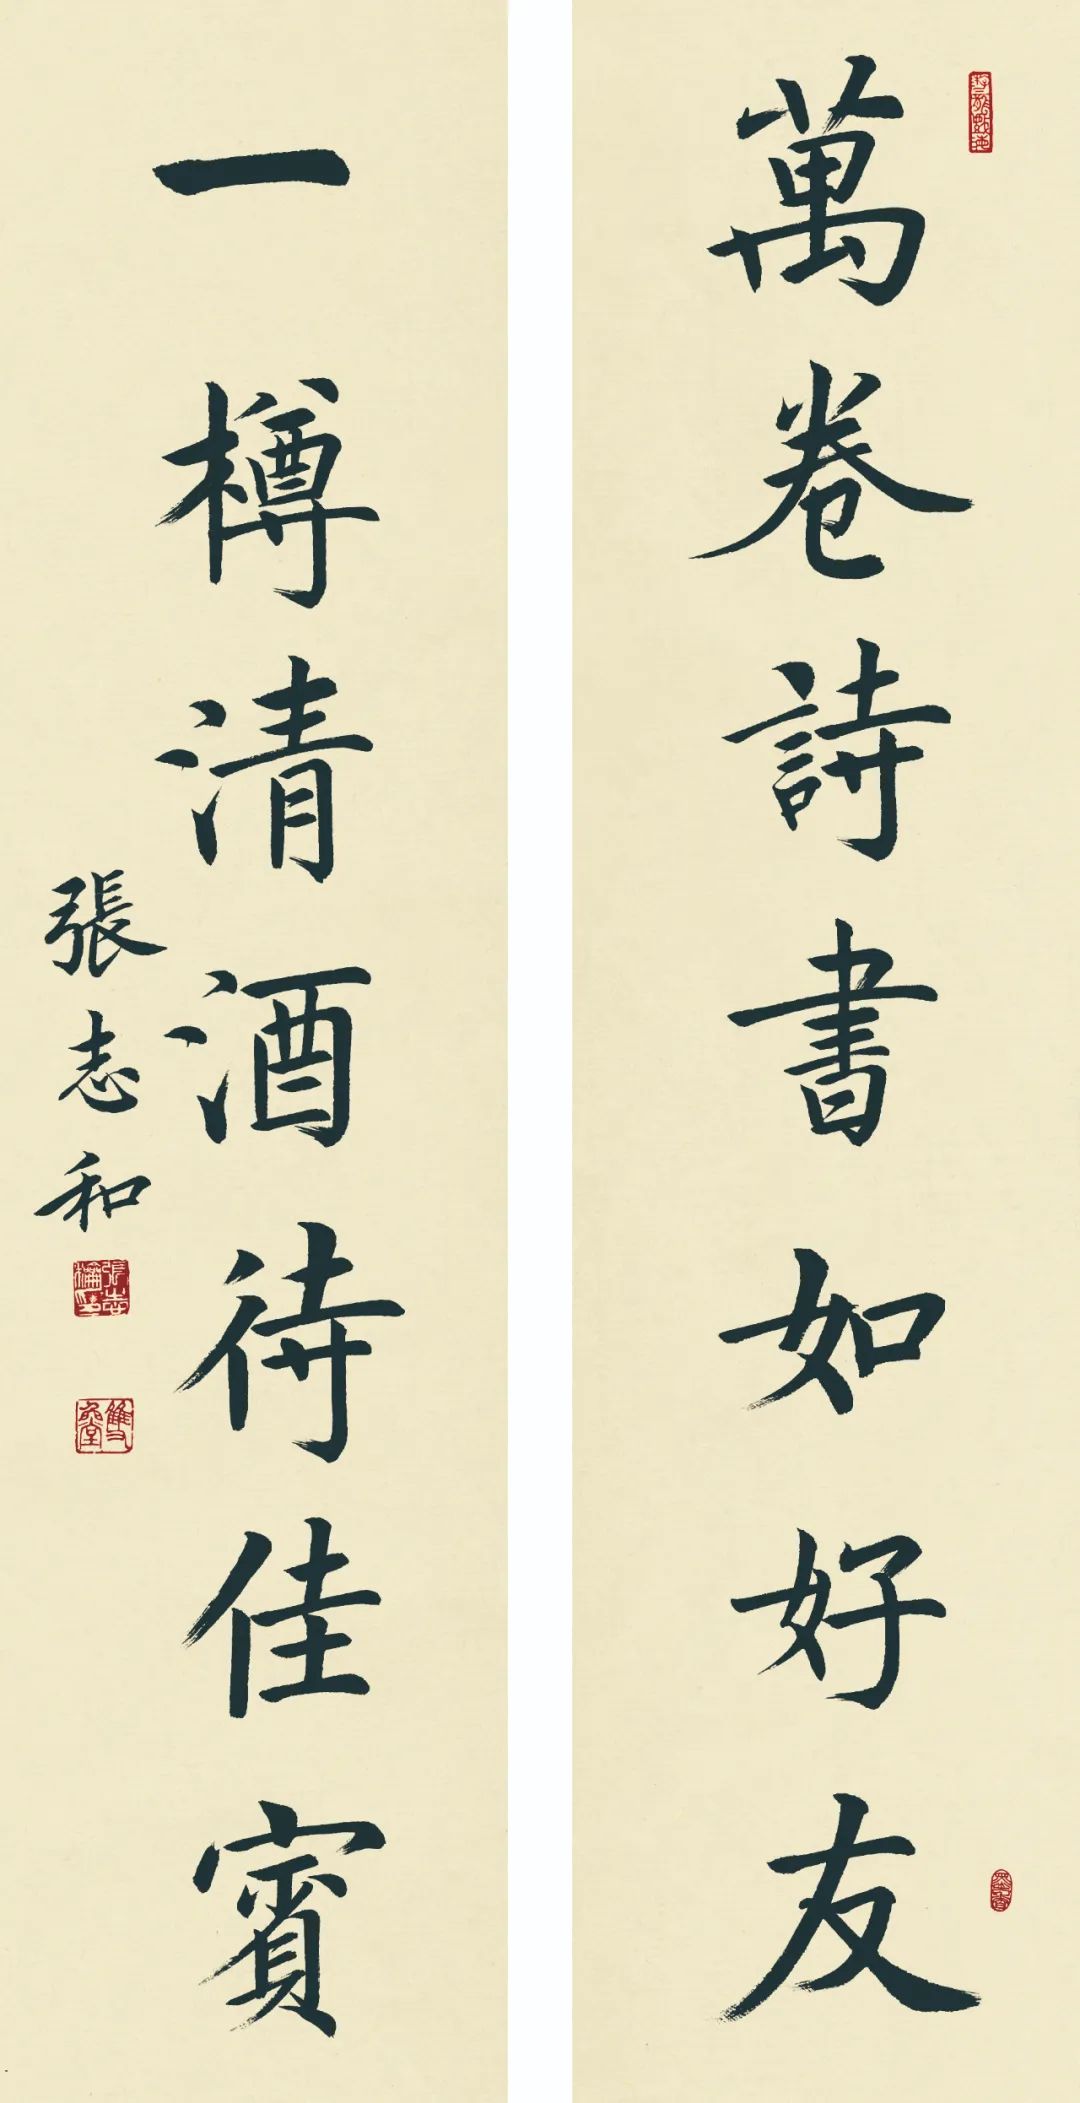 萬卷詩書如好友
一樽清酒待佳賓
張志和